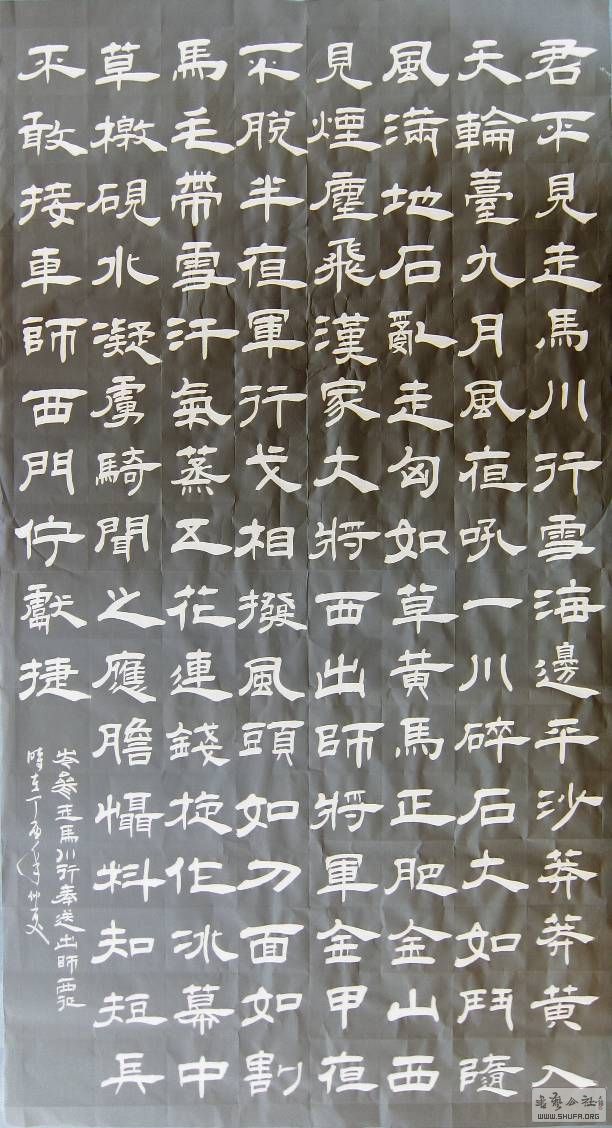 君不見走馬川行雪海邊平沙莽莽黄入
天輪臺九月風夜吼一川碎石大如鬥隨
風滿地石亂走匈如草黄馬正肥金山西
見煙塵飛漢家大將西出師將軍金甲夜
不脱半夜軍行戈相撥風頭如刀面如割
馬毛帶雪汗氣蒸五花連錢旋作冰幕中
草檄硯水凝虜騎聞之應膽懾料知短兵
不敢接車師西門佇獻捷
岑參走馬川行奉送出師西征
時在丁年仲夏
書藝公社
WWW.SHUFA.ORG